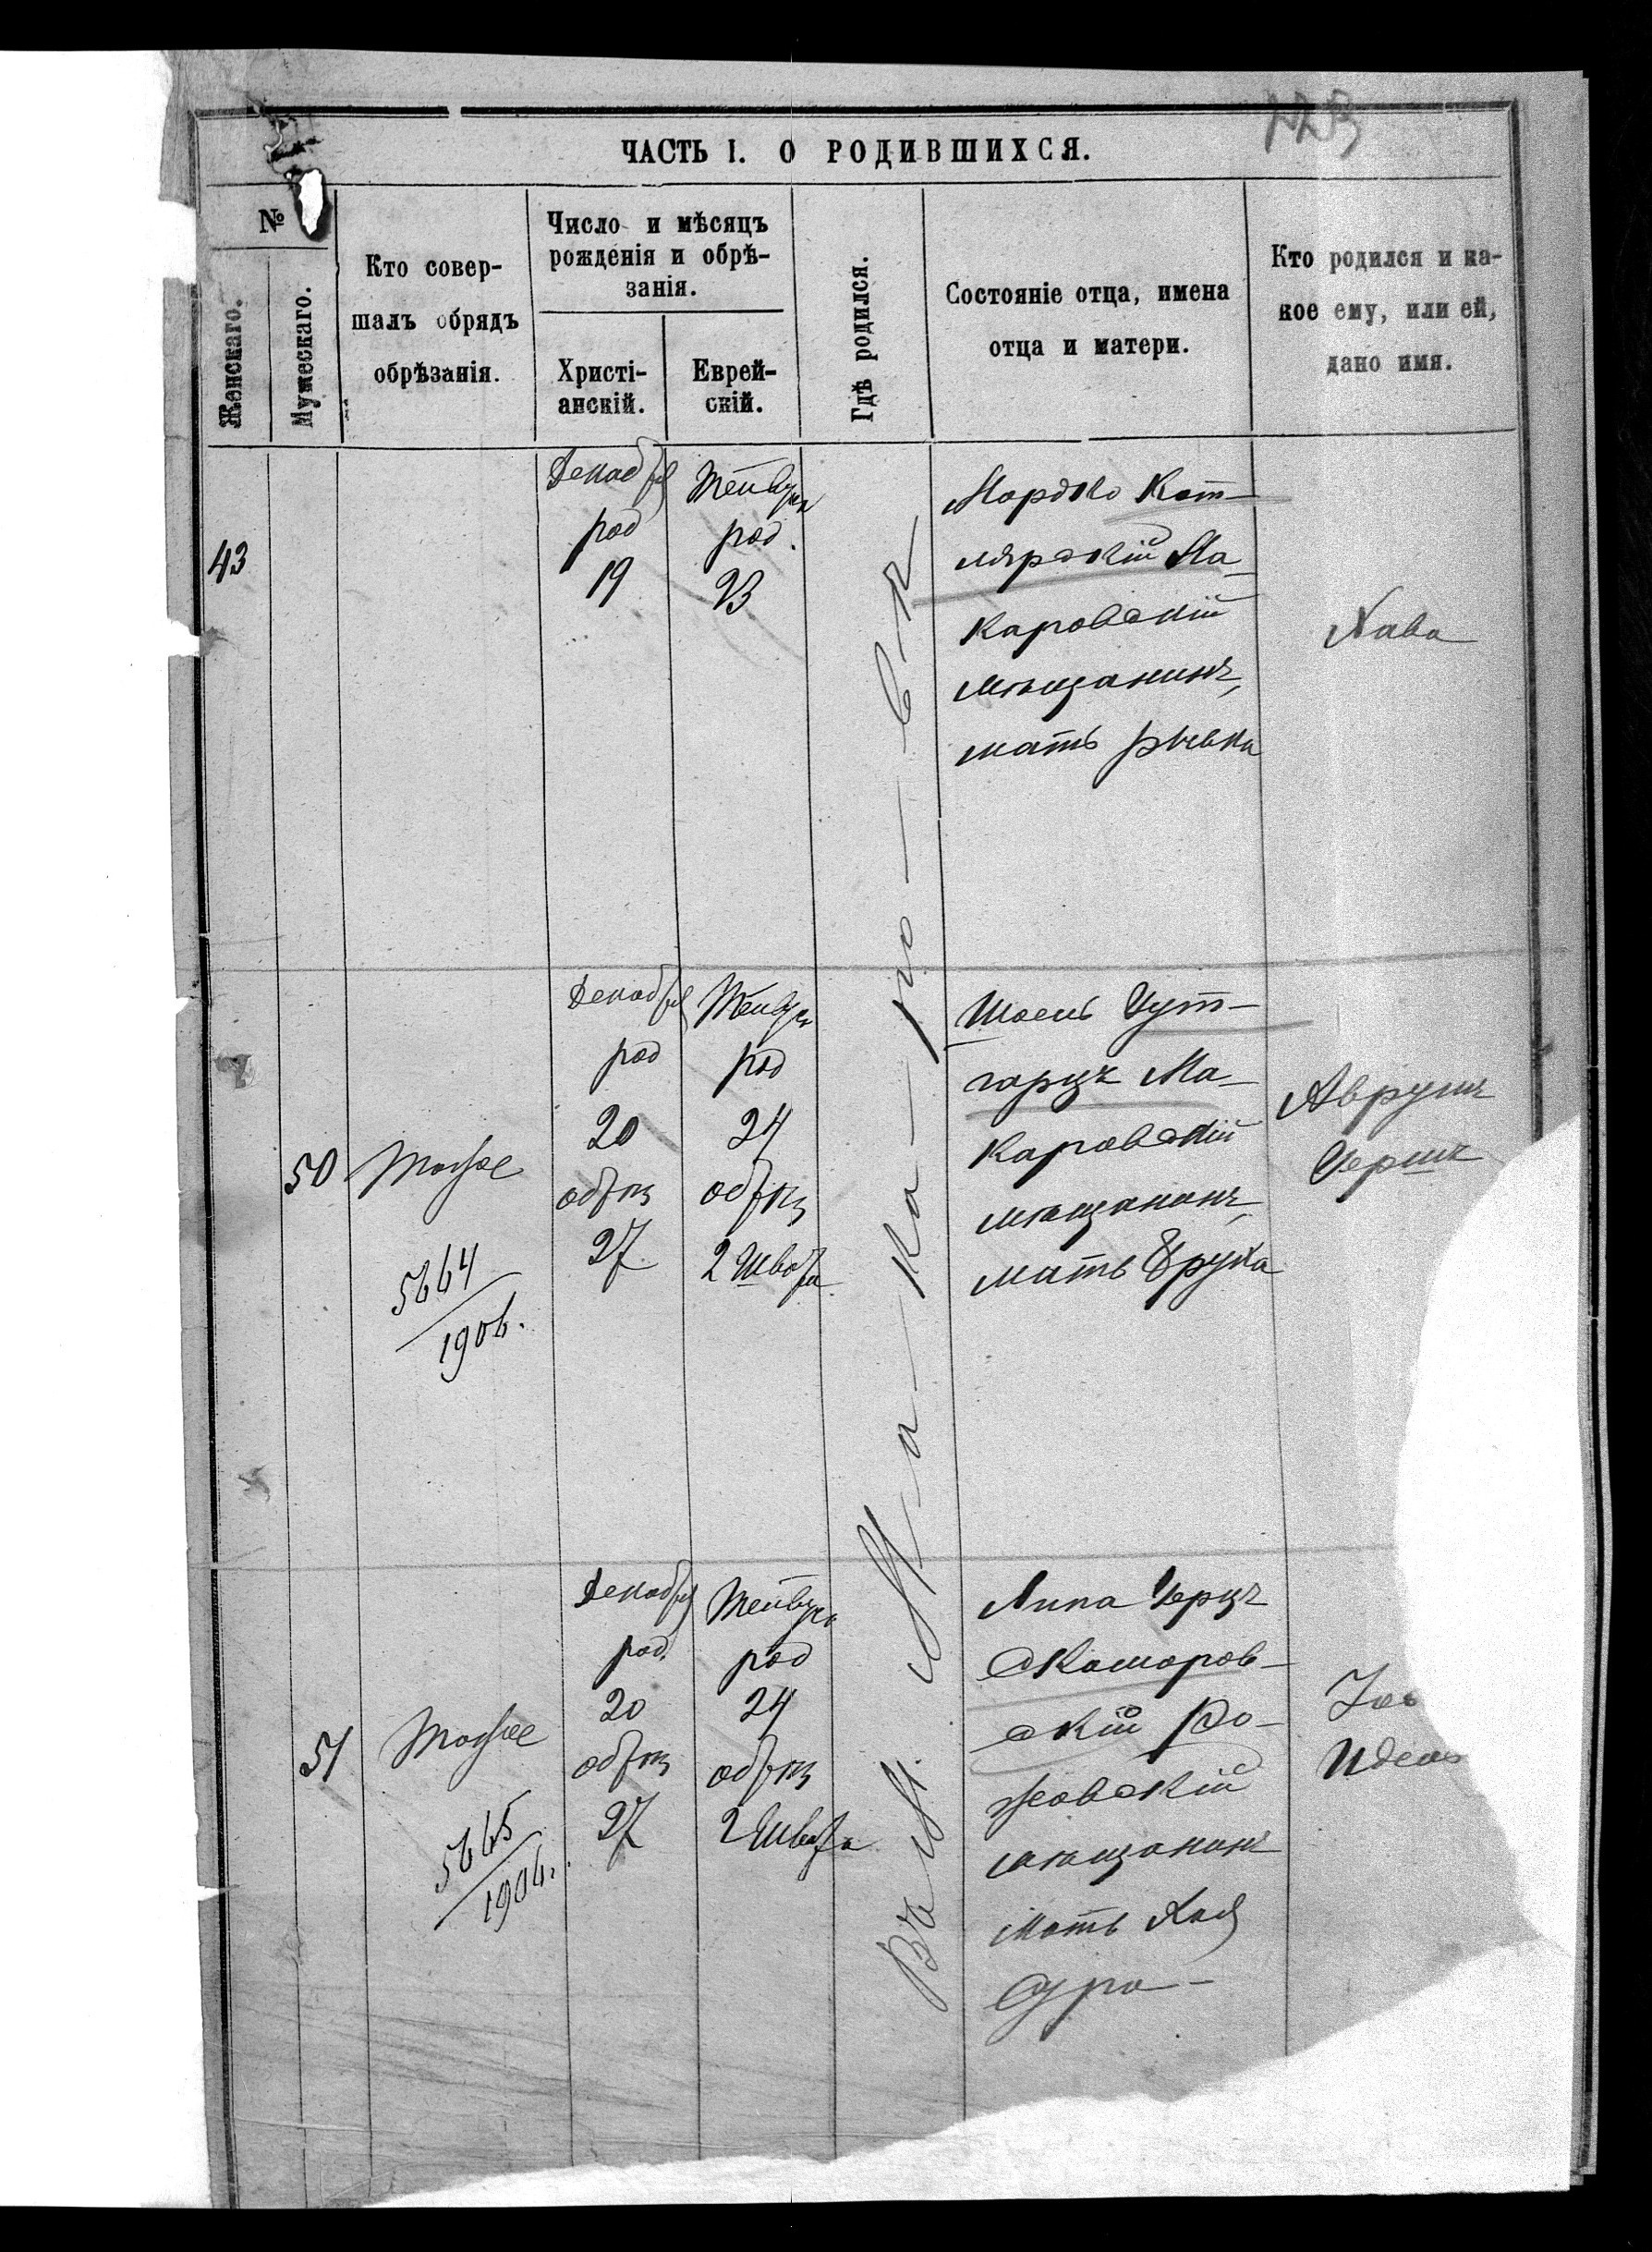 ЧАСТЬ I. О РОДИВШИХСЯ.
№
Женскаго.
Мужескаго.
Кто совер-
шалъ обрядъ
обрѣзанія.
Число и мѣсяцъ
рожденія и обрѣ-
занія.
Христі-
анскій.
Еврей-
скій.
Гдѣ родился.
Состояніе отца, имена
отца и матери.
Кто родился и ка-
кое ему, или ей,
дано имя.
43
Декабря
род
19
Тейвуса
род.
23
Мордко Кот-
лярскій Ма-
каровскій
мѣщанинъ,
мать Рывка
Хава
Въ м. Ма-ка-ро-вѣ
50
Мошко
5664
1906.
Декабря
род
20
обрѣз
27
Тейвуса
род
24
обрѣз
2 Швата
Шоель Гут-
гарцъ Ма-
каровскій
мѣщанинъ,
мать Брука
Аврумъ
Гершъ
51
Мошко
5665
1906.
Декабря
род.
20
обрѣз
27
Тейвуса
род
24
обрѣз
2 Швата
Липа Герцъ
Скоморов-
скій Ро-
жовскій
мѣщанинъ
мать Хая
Сура